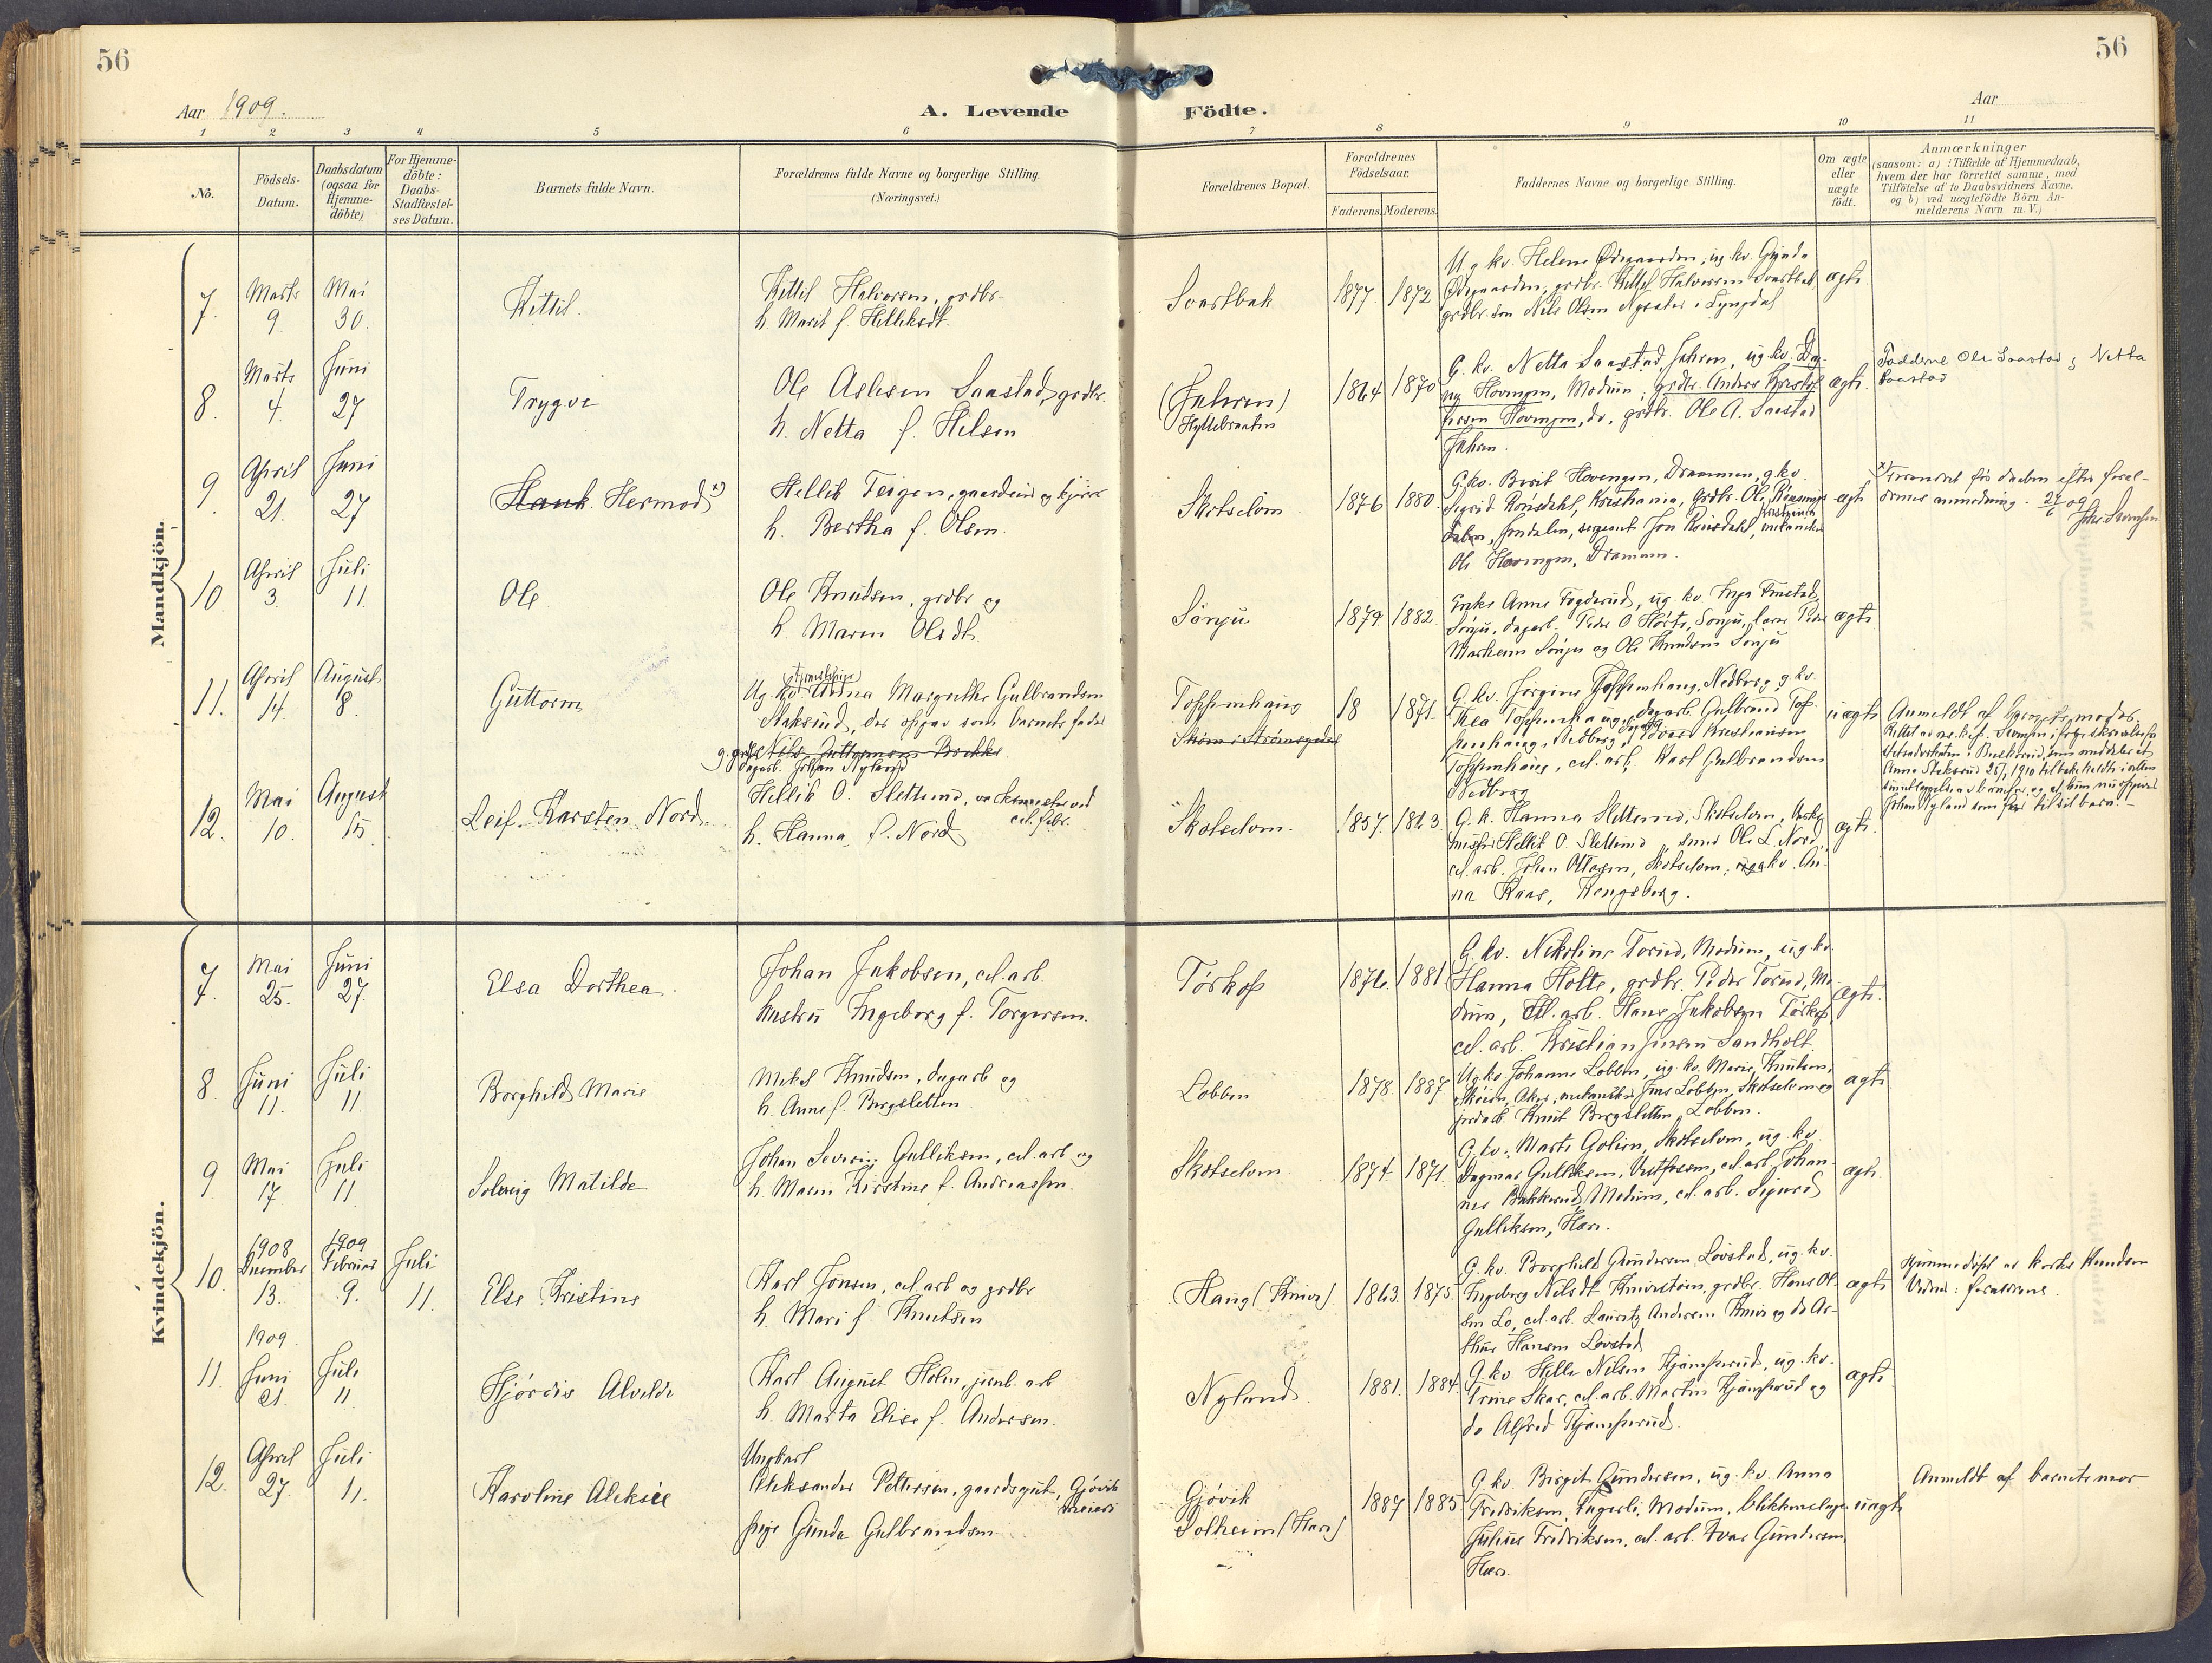 56
56
Aar 1909.
A. Levende Födte.
Aar
1 2 3 4 5 6 7 8 9 10 11
No.
Födsels-Datum.
Daabsdatum (ogsaa for Hjemme-döbte)
For Hjemme-döbte: Daabs-Stadfæstel-ses Datum.
Barnets fulde Navn.
Forældrenes fulde Navne og borgerlige Stilling.
(Næringsvei.)
Forældrenes Bopæl.
Forældrenes Födselsaar.
Faderens. Moderens.
Faddernes Navne og borgerlige Stilling.
Om ægte eller uægte födt.
Anmærkninger
(saasom: a) i Tilfælde af Hjemmedaab,
hvem der har forrettet samme, med
Tilföielse af to Daabsvidners Navne,
og b) ved uægtefödte Börn An-
melderens Navn m. V.)
Mandkjön.
7. Marts 9. Mai 30.
Kittil.
Kittil Halvorsen, grdbr.
h. Marit f. Helliksdt.
Svartbak
1877 1872
Ug. kv. Helene Ødegaarden, ug. kv. Gunda
Ødegaarden, grdbr. Kittil Halvorsen Svartbak
grdbr. søn Nils Olsen
ægte
8. Marts 4. Juni 27
Trygve
Ole Aslesen Saastad, grdbr.
h. Netta f. Hilsen
(Fahren)
Hyttebraaten
1864 1870
G. kv. Netta Saastad, Fahren, ug. kv. Dag-
ny Hovengen, Modum, grdbr. Anders Kristof-
fersen Hovengen, do, grdbr. Ole A. Saastad
Fahren.
ægte.
Fadderne Ole Saastad & Netta
Saastad
9. April 21. Juni 27
Hauk Hermod x)
Hellik Teigen, gaardeier og
h. Bertha f. Olsen.
Skotselven
1876 1880
G. kv. Borit Hovengen, Drammen, g. kv.
Sigrid Rønsdahl, Kristiania, grdbr. Ole
sergeant Jon Rønsdahl,
Ole Hovengen, Drammen.
ægte
x) Forandret før daaben efter foræl-
drenes anmodning. 27/6 09
10. April 3. Juli 11.
Ole
Ole Knudsen, grdbr og
h. Maren Olsdt.
Sønju
1879 1882.
Enke Anne Fogderud, ug. kv. Inga
Sønju, dagarb. Peder O
og Ole Knudsen Sønju
ægte
11. April 14. August 8.
Guttorm
Ug. kv. Anna Margrethe Gulbrandsen
Staksrud, der opgav som barnets fader
Nils Guttormsen Brekke
dagarb. Johan Nyland
Toppenhaug
18 1871.
G. kv. Jørgine Toppenhaug, Nedberg, g. kv.
Thea Toppenhaug, dagarb. Gulbrand Top-
penhaug, Nedberg,
Toppenhaug, cel. arb. Karl Gulbrandsen
Nedberg
uægte
Anmeldt af barnets moder.
12. Mai 10. August 15.
Leif Karsten Nord.
Hellik O. Slettemo, verksmester ved
cel. fabr.
h. Hanna f. Nord
Skotselven.
1857. 1863.
G. k. Hanna Slettemo, Skotselven, Verks-
mester Hellik O. Slettemo, Ole L. Nord
cel. arb. Johan Ottosen, Skotselven; ug. kv. An-
na Kaas, Kongsberg.
ægte.
Kvindekjön.
7. Mai 25. Juni 27.
Elsa Dorthea.
Johan Jakobsen, cel. arb.
hustru Ingeborg f. Torgersen.
Tørkop
1876. 1881
G. kv. Nikoline Torud, Modum, ug. kv.
Hanna Holte, grdbr. Peder Torud, Mo-
dum, cel. arb. Hans Jakobsen Tørkop,
cel. arb. Kristian Jensen Sandholt.
ægte.
8. Juni 11. Juli 11.
Borghild Marie
Mikal Knudsen, dagarb og
h. Anne f. Bergsletten.
Lobben
1878. 1887
Ug. kv. Johanne Lobben, ug. kv. Marie Knutsen,
Skøien, Aker, mekaniker Jens Lobben, Skotselven og
jordarb. Knut Bergsletten, Lobben.
ægte
9 Mai 17. Juli 11.
Solveig Matilde
Johan Severin Gulliksen, cel. arb og
h. Maren Kirstine f. Andreassen.
Skotselven
1874 1871.
G. kv. Marte Golien, Skotselven, ug. kv.
Dagmar Gulliksen, Vestfossen, cel. arb. Johan-
nes Bakkerud, Modum, cel. arb. Sigurd
Gulliksen, Horn.
ægte.
10. 1908 December 13. 1909 Februar 9. Juli 11.
Else Kristine
Karl Jonsen, cel. arb og grdbr
h. Mari f. Knutsen
Haug (Knive)
1863. 1875.
G. kv. Borghild Gundersen Lovstad, ug. kv.
Ingeborg Nilsdt Knivestøen, grdbr. Hans Ol-
sen Lo, cel. arb. Lauritz Andersen Knive og do Ar-
thur Hansen Lovstad
ægte
Hjemmedøpt av Knudsen
Vidner: forældrene.
11. 1909. Juni 21. Juli 11
Hjørdis Alvilde
Karl August Holm, jernb. arb
h. Marta Elise f. Andersen.
Nyland.
1881. 1884.
G. kv. Helle Nilsen Hjemperud, ug. kv.
Trine Skar, cel. arb. Martin Hjemperud og
do Alfred Hjemperud.
ægte
12. April 27. Juli 11.
Karoline Aleksie
Ungkarl
Aleksander Pettersen, gaardsgut, Gjøvik
meieri
pige Gunda Gulbrandsen
Gjøvik
Solheim (Horn)
1887 1885
G. kv. Birgit Gundersen, ug. kv. Anna
Fredriksen, Fagerli, Modum, blikkenslager
Julius Fredriksen, cel. arb. Ivar Gundersen
Horn.
uægte
Anmeldt af barnets mor